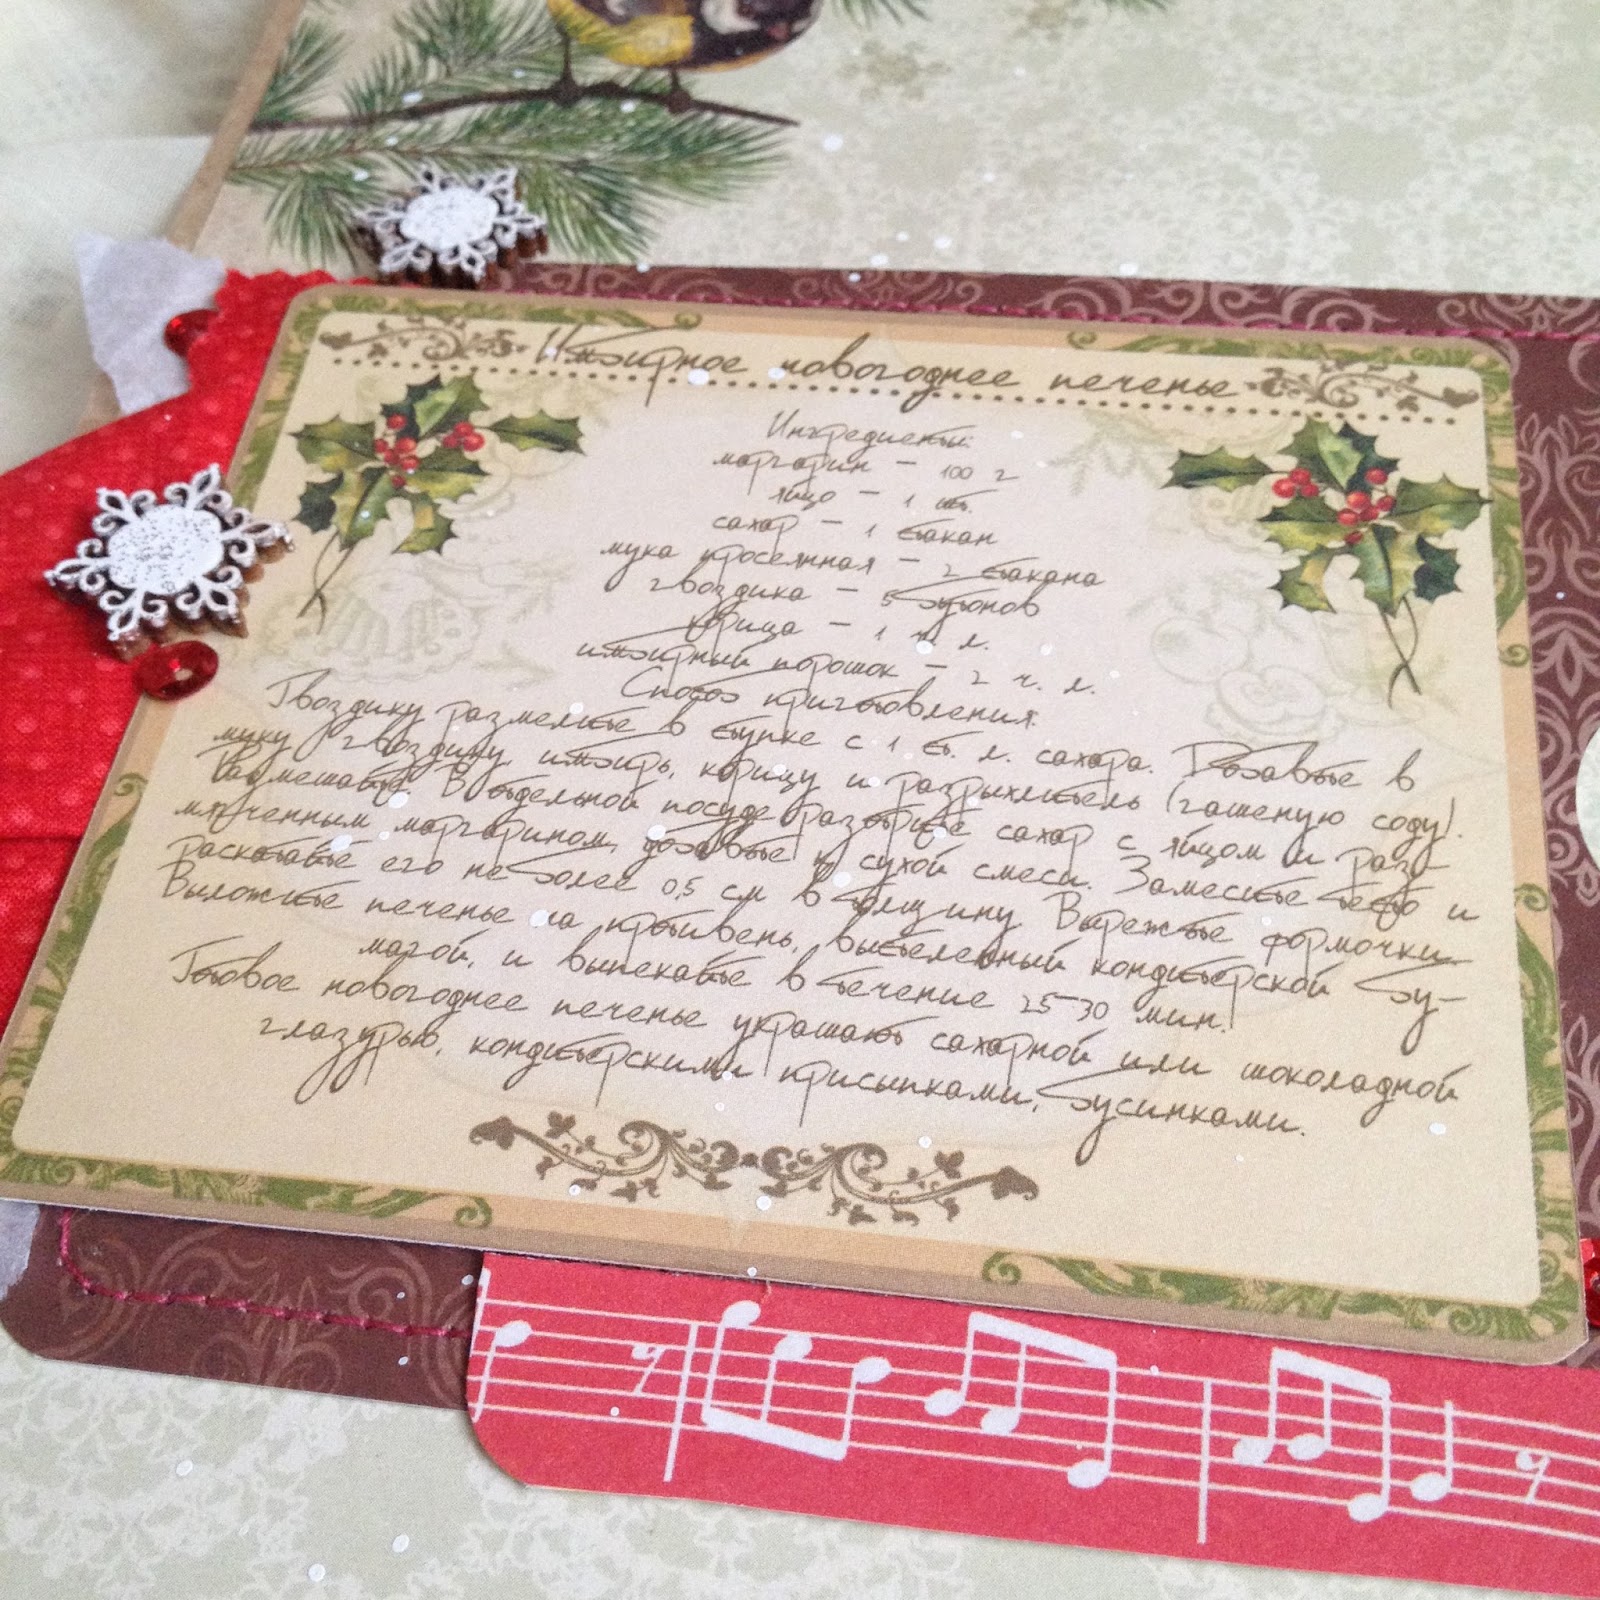 Имбирное новогоднее печенье
Ингредиенты:
маргарин – 100 г
яйцо – 1 шт.
сахар – 1 стакан
мука просеянная – 2 стакана
гвоздика – 5 бутонов
корица – 1 ч. л.
имбирный порошок – 2 ч. л.
Способ приготовления:
Гвоздику размелите в ступке с 1 ст. л. сахара. Добавьте в
муку гвоздику, имбирь, корицу и разрыхлитель (гашеную соду).
Размешайте. В отдельной посуде разотрите сахар с яйцом и раз-
мягченным маргарином, добавьте к сухой смеси. Замесите тесто и
раскатайте его не более 0,5 см в толщину. Вырежьте формочки.
Выложите печенье на противень, выстеленный кондитерской бу-
магой, и выпекайте в течение 25-30 мин.
Готовое новогоднее печенье украшают сахарной или шоколадной
глазурью, кондитерскими присыпками, бусинками.